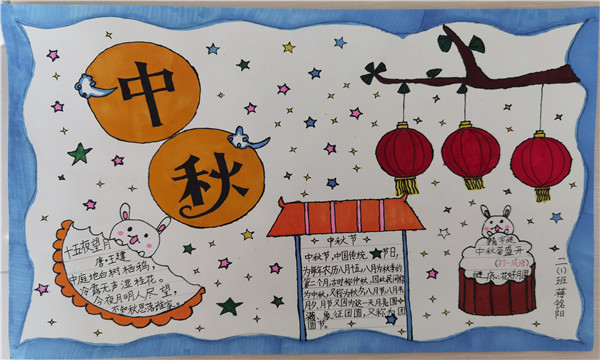 中
秋
十五夜望月
唐·王建
中庭地白树栖鸦，
冷露无声湿桂花。
今夜月明人尽望，
不知秋思落谁家。
中秋节
中秋节，中国传统 节日，
为每年农历八月十五，八月为秋季的
第二个月，古时称仲秋，因此民间称
为中秋，又称为秋夕，八月节，八月半，
月夕，月节又因为这一天月亮
满，象征团圆，又称为团
圆节。
猜字谜
中秋菊盛开
(打一成语)
谜底：花好月圆
二(1)班 蒋铭阳